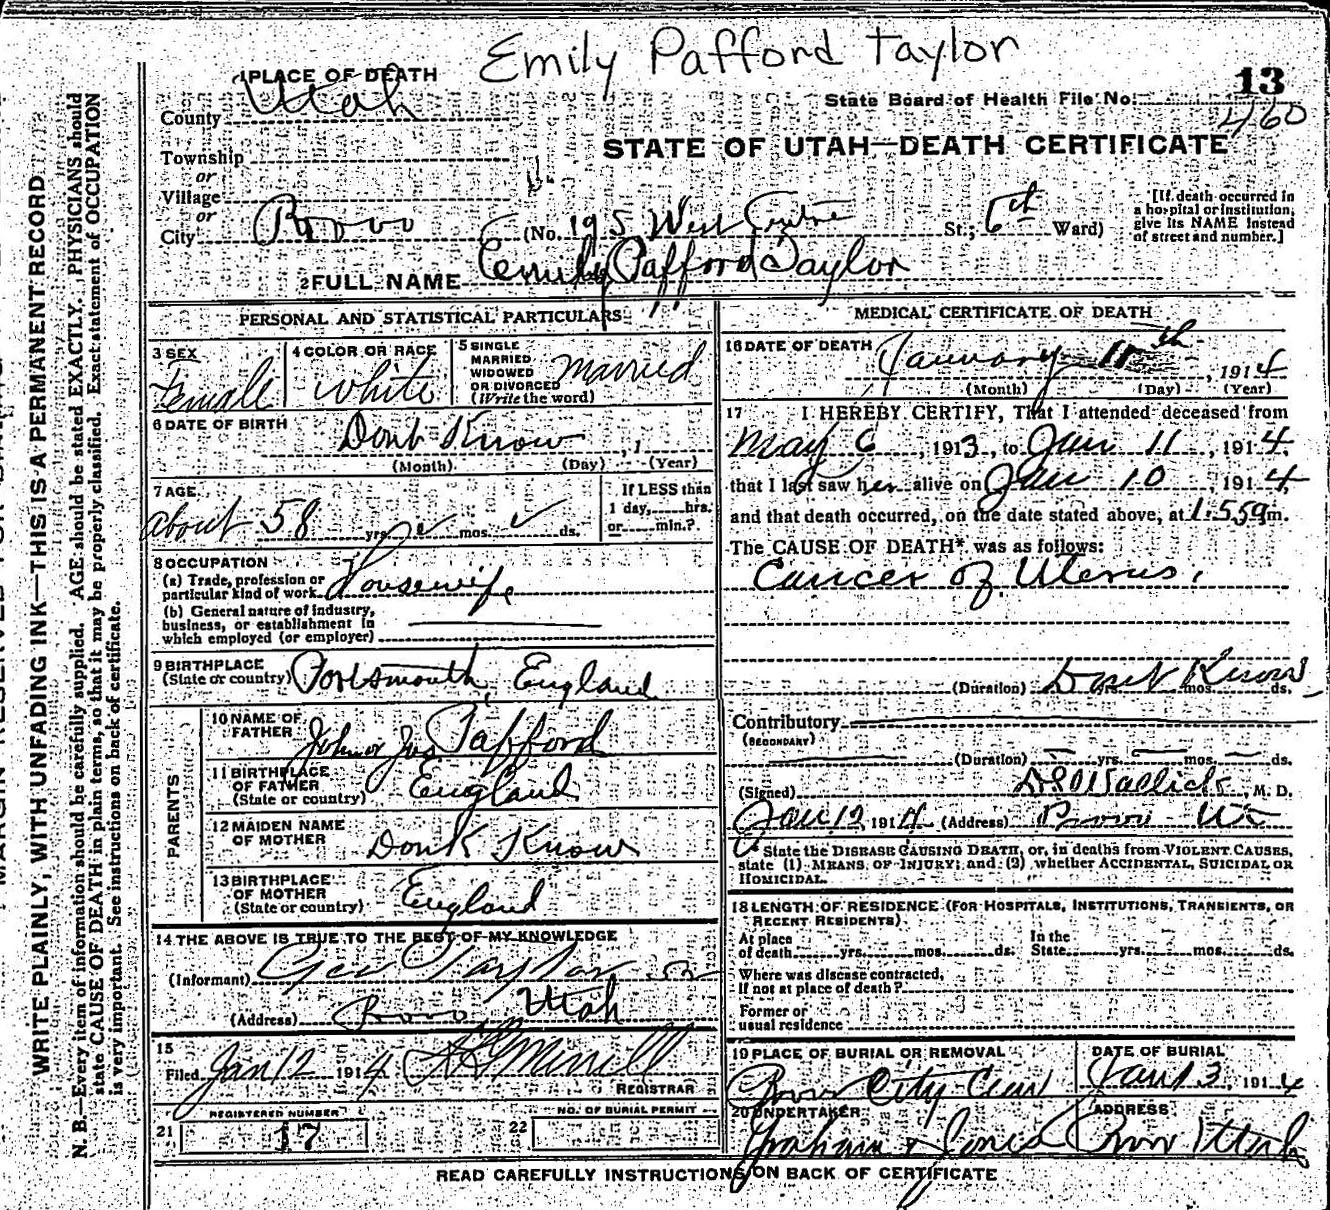 Emily Pafford Taylor
1 PLACE OF DEATH
13
State Board of Health File No. 460
County Utah
STATE OF UTAH—DEATH CERTIFICATE
Township
or
Village
or
City Provo (No. 195 West Centre St.; 6th Ward)
[If death occurred in
a hospital or institution,
give its NAME instead
of street and number.]
2 FULL NAME Emily Pafford Taylor
PERSONAL AND STATISTICAL PARTICULARS
3 SEX
Female
4 COLOR OR RACE
White
5 SINGLE
MARRIED
WIDOWED
OR DIVORCED
(Write the word)
Married
6 DATE OF BIRTH
Dont Know , 1
(Month) (Day) (Year)
7 AGE
about 58 yrs. mos. ds.
If LESS than
1 day, hrs.
or min.?
8 OCCUPATION
(a) Trade, profession or
particular kind of work Housewife
(b) General nature of industry,
business, or establishment in
which employed (or employer)
9 BIRTHPLACE
(State or country) Portsmouth, England
PARENTS
10 NAME OF
FATHER John or Jas Pafford
11 BIRTHPLACE
OF FATHER
(State or country) England
12 MAIDEN NAME
OF MOTHER Dont Know
13 BIRTHPLACE
OF MOTHER
(State or country) England
14 THE ABOVE IS TRUE TO THE BEST OF MY KNOWLEDGE
(Informant) Geo Taylor Sr
(Address) Provo Utah
15
Filed Jan 12 1914 Merrill
REGISTRAR
REGISTERED NUMBER
21 17
NO. OF BURIAL PERMIT
22
MEDICAL CERTIFICATE OF DEATH
16 DATE OF DEATH January 11th, 1914
(Month) (Day) (Year)
17 I HEREBY CERTIFY, That I attended deceased from
May 6, 1913, to Jan 11, 1914,
that I last saw her alive on Jan 10, 1914,
and that death occurred, on the date stated above, at 1:55 a m.
The CAUSE OF DEATH* was as follows:
Cancer of Uterus.
(Duration) Dont Know yrs. mos. ds.
Contributory
(SECONDARY)
(Duration) yrs. mos. ds.
(Signed) , M. D.
Jan 12, 1914 (Address) Provo Ut
* State the DISEASE CAUSING DEATH, or, in deaths from VIOLENT CAUSES,
state (1) MEANS OF INJURY; and (2) whether ACCIDENTAL, SUICIDAL OR
HOMICIDAL.
18 LENGTH OF RESIDENCE (FOR HOSPITALS, INSTITUTIONS, TRANSIENTS, OR
RECENT RESIDENTS)
At place
of death yrs. mos. ds.
In the
State yrs. mos. ds.
Where was disease contracted,
if not at place of death?
Former or
usual residence
19 PLACE OF BURIAL OR REMOVAL
Provo City Cem
DATE OF BURIAL
Jan 13, 1914
20 UNDERTAKER
Graham & Jones
ADDRESS
Provo Utah
READ CAREFULLY INSTRUCTIONS ON BACK OF CERTIFICATE
WRITE PLAINLY, WITH UNFADING INK—THIS IS A PERMANENT RECORD
N. B.—Every item of information should be carefully supplied. AGE should be stated EXACTLY. PHYSICIANS should
state CAUSE OF DEATH in plain terms, so that it may be properly classified. Exact statement of OCCUPATION
is very important. See instructions on back of certificate.